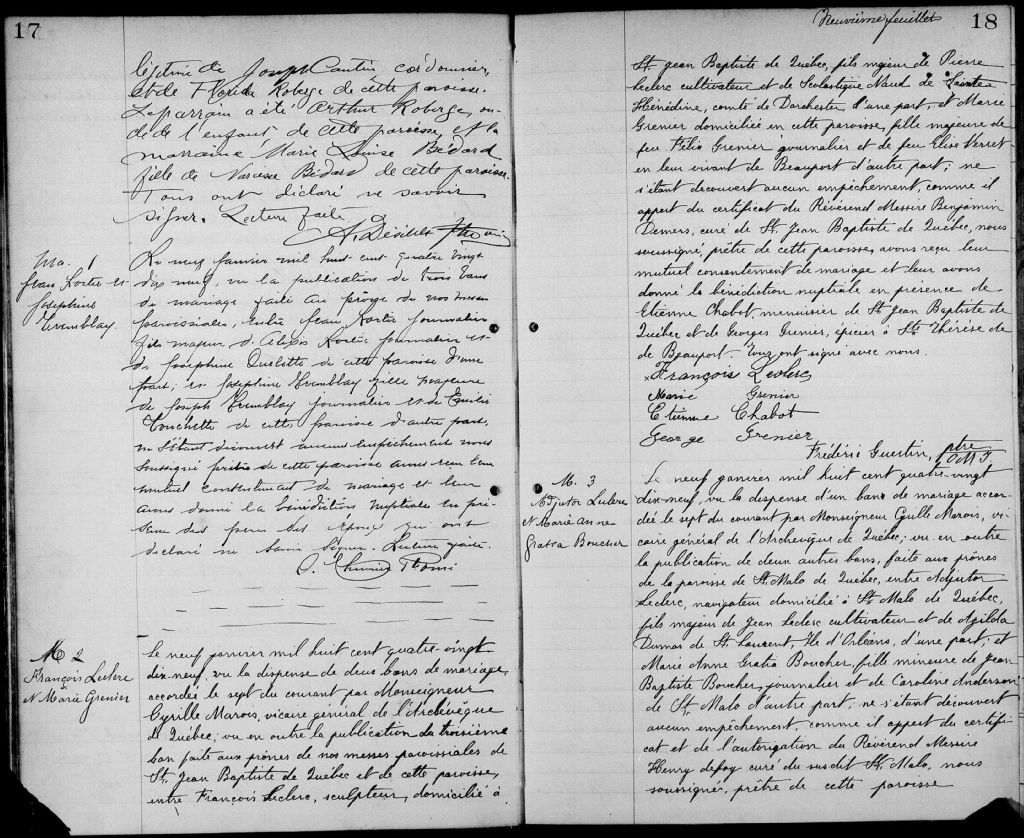 17
légitime de Joseph Cantin cordonnier,
et de Florida Roberge de cette paroisse.
Le parrain a été Arthur Roberge, on-
cle de l'enfant, de cette paroisse, et la
marraine Marie Louise Bédard
fille de Narcisse Bédard de cette paroisse.
Tous ont déclaré ne savoir
signer. Lecture faite
Ma. 1
Jean Fortin et
Joséphine
Tremblay.
Le neuf janvier mil huit cent quatre vingt
dix neuf, vu la publication de trois bans
de mariage faite au prône de nos messes
paroissiales, entre Jean journalier
fils majeur d'Alexis journalier et
de Joséphine Ouellette de cette paroisse d'une
part; et Joséphine Tremblay fille majeure
de Joseph Tremblay journalier et de Emilie
Touchette de cette paroisse d'autre part,
ne s'étant découvert aucun empêchement nous
soussigné prêtre de cette paroisse avons reçu leur
mutuel consentement de mariage et leur
avons donné la bénédiction nuptiale en pré-
sence des pères des époux qui ont
déclaré ne savoir signer. Lecture faite.
M 2
François Leclerc
&
Marie Grenier
Le neuf janvier mil huit cent quatre-vingt
dix-neuf, vu la dispense de deux bans de mariage,
accordée le sept du courant par Monseigneur
Cyrille Marois, vicaire général de l'Archevêque
de Québec; vu en outre la publication du troisième
ban faite aux prônes de nos messes paroissiales de
St. Jean Baptiste de Québec et de cette paroisse,
entre François Leclerc, sculpteur, domicilié à
Neuvième feuillet
18
St. Jean Baptiste de Québec, fils majeur de Pierre
Leclerc cultivateur et de Scolastique Naud de Sainte
Hénédine, comté de Dorchester, d'une part, et Marie
Grenier domiciliée en cette paroisse, fille majeure de
feu Félix Grenier journalier et de feu Elise Verret
en leur vivant de Beauport d'autre part; ne
s'étant découvert aucun empêchement, comme il
appert du certificat du Révérend Messire Benjamin
Demers, curé de St. Jean Baptiste de Québec, nous
soussigné, prêtre de cette paroisse, avons reçu leur
mutuel consentement de mariage et leur avons
donné la bénédiction nuptiale en présence de
Etienne Chabot, menuisier de St. Jean Baptiste de
Québec et de Georges Grenier, épicier à Ste Thérèse de
de Beauport. Tous ont signé avec nous.
François Leclerc
Marie Grenier
Etienne Chabot
George Grenier
Frédéric Guertin, ptre
O M I
M. 3
Adjutor Leclerc
& Marie Anne
Gratia Boucher
Le neuf janvier mil huit cent quatre-vingt
dix-neuf, vu la dispense d'un banc de mariage accor-
dée le sept du courant par Monseigneur Cyrille Marois, vi-
caire général de l'Archevêque de Québec; vu en outre
la publication de deux autres bans, faite aux prônes
de la paroisse de St. Malo de Québec, entre Adjutor
Leclerc, navigateur domicilié à St. Malo de Québec,
fils majeur de Jean Leclerc cultivateur et de Azilda
Dumas de St. Laurent, Ile d'Orléans, d'une part, et
Marie Anne Gratia Boucher, fille mineure de Jean
Baptiste Boucher, journalier et de Caroline Anderson
de St. Malo d'autre part; ne s'étant découvert
aucun empêchement, comme il appert du certifi-
cat et de l'autorisation du Révérend Messire
Henry defoy curé du susdit St. Malo, nous
soussigné, prêtre de cette paroisse